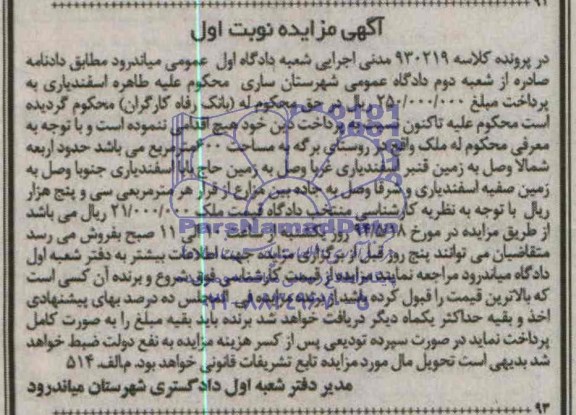 ۹۱
آگهی مزایده نوبت اول
در پرونده کلاسه ۹۳۰۲۱۹ مدنی اجرایی شعبه دادگاه اول عمومی میاندرود مطابق دادنامه
صادره از شعبه دوم دادگاه عمومی شهرستان ساری محکوم علیه طاهره اسفندیاری به
پرداخت مبلغ ۲۵۰/۰۰۰/۰۰۰ ریال در حق محکوم له (بانک رفاه کارگران) محکوم گردیده
است محکوم علیه تاکنون نسبت به پرداخت دین خود هیچ اقدامی ننموده است و با توجه به
معرفی محکوم له ملک واقع در روستای برگه به مساحت ۶۰۰ مترمربع می باشد حدود اربعه
شمالا وصل به زمین قنبر اسفندیاری غربا وصل به زمین حاج بابا اسفندیاری جنوبا وصل به
زمین صفیه اسفندیاری و شرقا وصل به جاده بین مزارع از قرار هر مترمربعی سی و پنج هزار
ریال با توجه به نظریه کارشناسی منتخب دادگاه قیمت ملک ۲۱/۰۰۰/۰۰۰ ریال می باشد
از طریق مزایده در مورخ روز و ساعت الی ۱۱ صبح بفروش می رسد
متقاضیان می توانند پنج روز قبل از برگزاری مزایده جهت اطلاعات بیشتر به دفتر شعبه اول
دادگاه میاندرود مراجعه نمایند مزایده از قیمت کارشناسی فوق شروع و برنده آن کسی است
که بالاترین قیمت را قبول کرده باشد از برنده مزایده فی المجلس ده درصد بهای پیشنهادی
اخذ و بقیه حداکثر یکماه دیگر دریافت خواهد شد برنده باید بقیه مبلغ را به صورت کامل
پرداخت نماید در صورت سپرده تودیعی پس از کسر هزینه مزایده به نفع دولت ضبط خواهد
شد بدیهی است تحویل مال مورد مزایده تابع تشریفات قانونی خواهد بود. م/الف ۵۱۴
مدیر دفتر شعبه اول دادگستری شهرستان میاندرود
۹۳
ParsNamadData